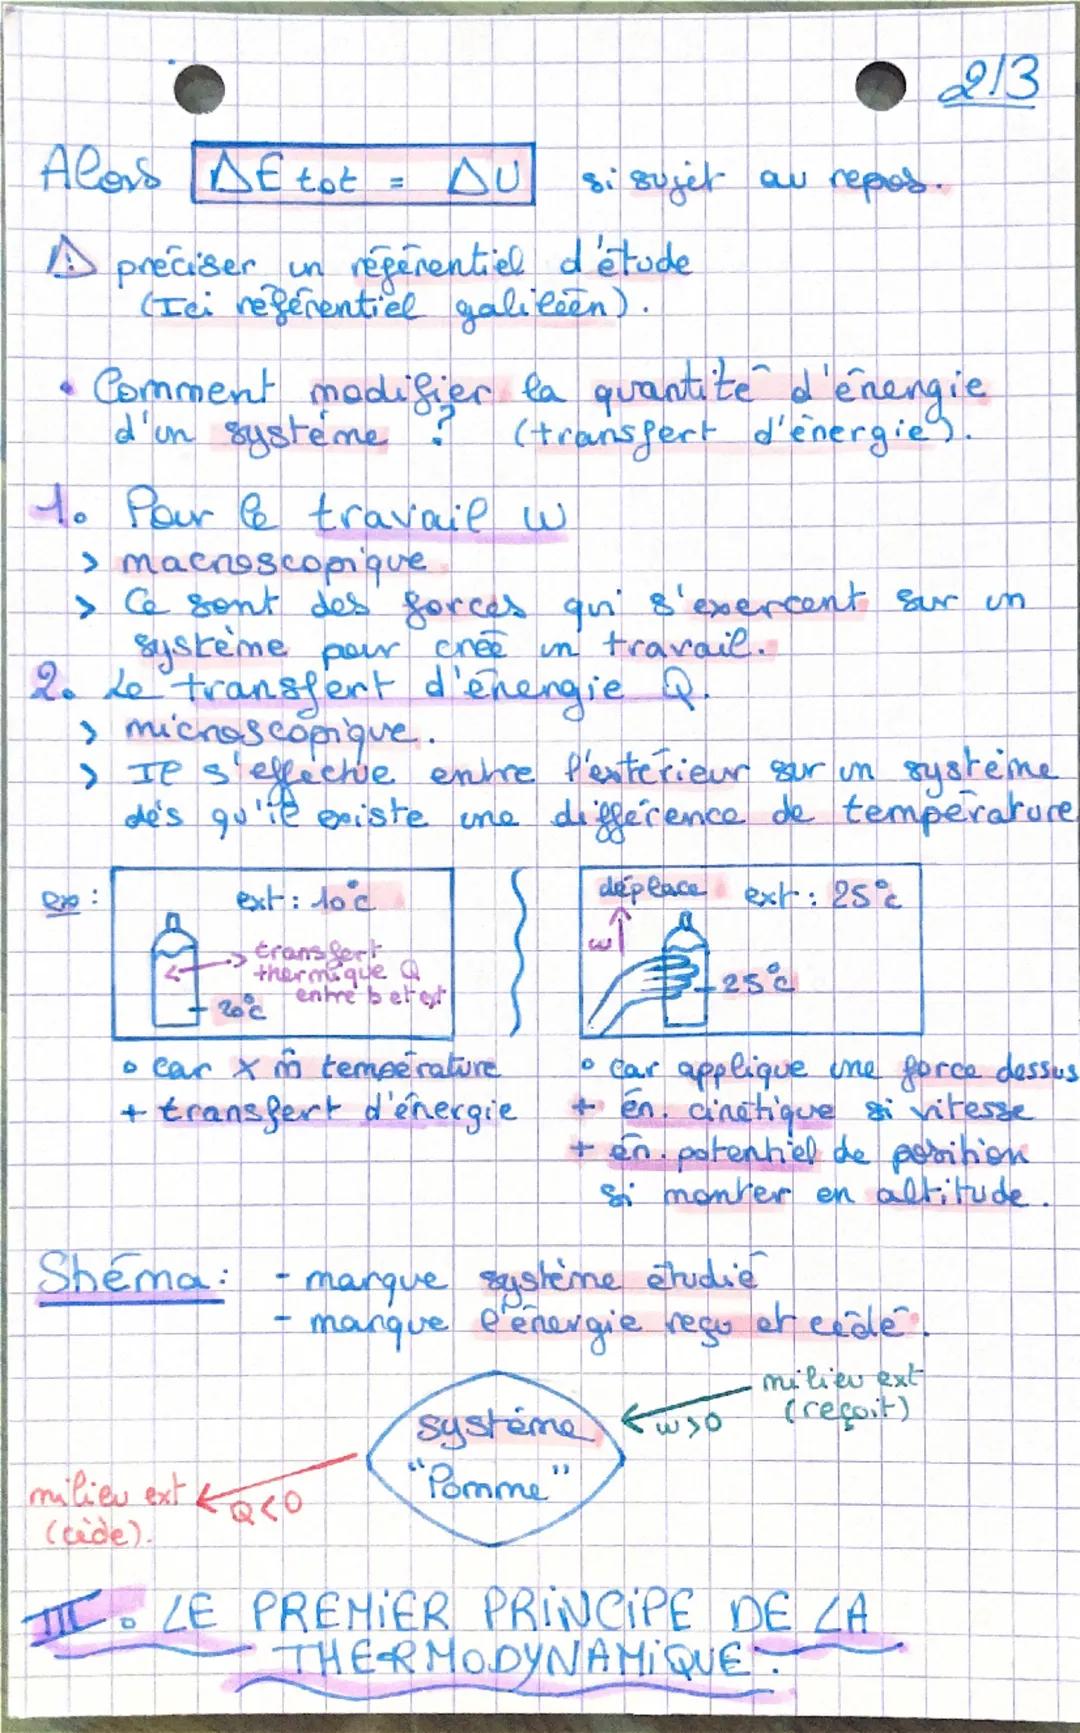 2/3
Alors ΔE tot = ΔU si sujet au repos.
⚠ préciser un référentiel d'étude
(Ici référentiel galiléen).
• Comment modifier la quantité d'énergie
d'un système ? (transfert d'énergie).
1. Pour le travail W
> macroscopique
> Ce sont des forces qui s'exercent sur un
système pour créé un travail.
2. Le transfert d'énergie Q.
> microscopique.
> Il s'effectue entre l'extérieur sur un système
dès qu'il existe une différence de température
ex :
ext : 10°c
transfert
thermique Q
entre b et ext
20°c
déplace ext : 25°c
w
25°c
• car x m̂ température
+ transfert d'énergie
• car applique une force dessus
+ én. cinétique si vitesse
+ én. potentiel de position
si monter en altitude.
Shéma : - marque système étudié
- marque l'énergie reçu et cédé.
milieu ext
(reçoit)
W>0
système
"Pomme"
milieu ext
(cède).
Q<0
III. LE PREMIER PRINCIPE DE LA
THERMODYNAMIQUE.